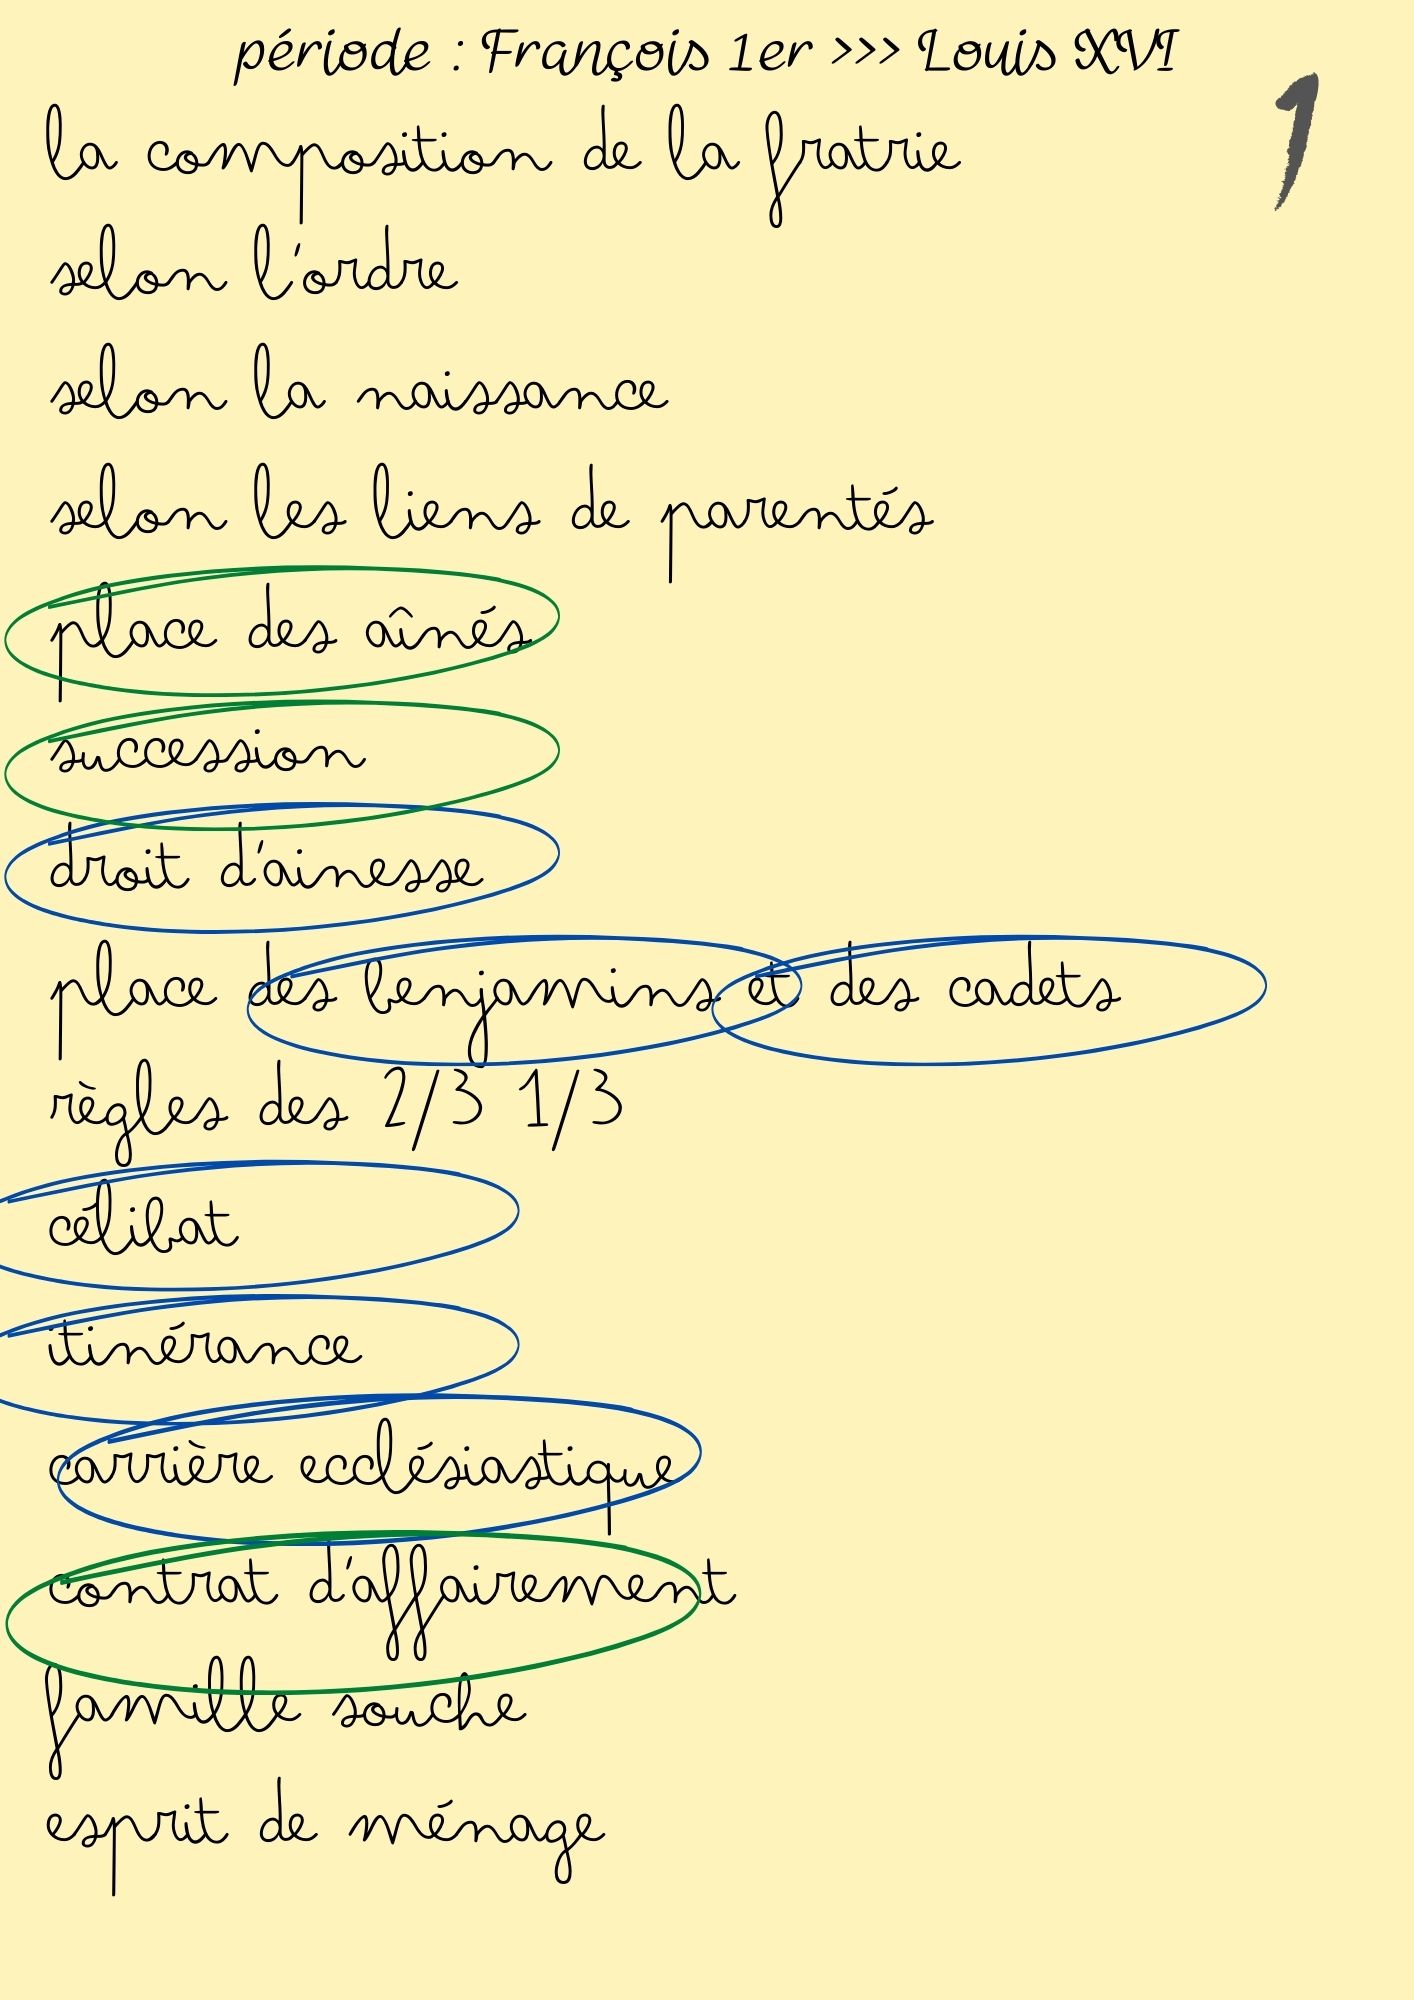 période : François 1er >>> Louis XVI
1
la composition de la fratrie
selon l'ordre
selon la naissance
selon les liens de parentés
place des aînés
succession
droit d'ainesse
place des benjamins et des cadets
règles des 2/3 1/3
célibat
itinérance
carrière ecclésiastique
contrat d'affairement
famille souche
esprit de ménage